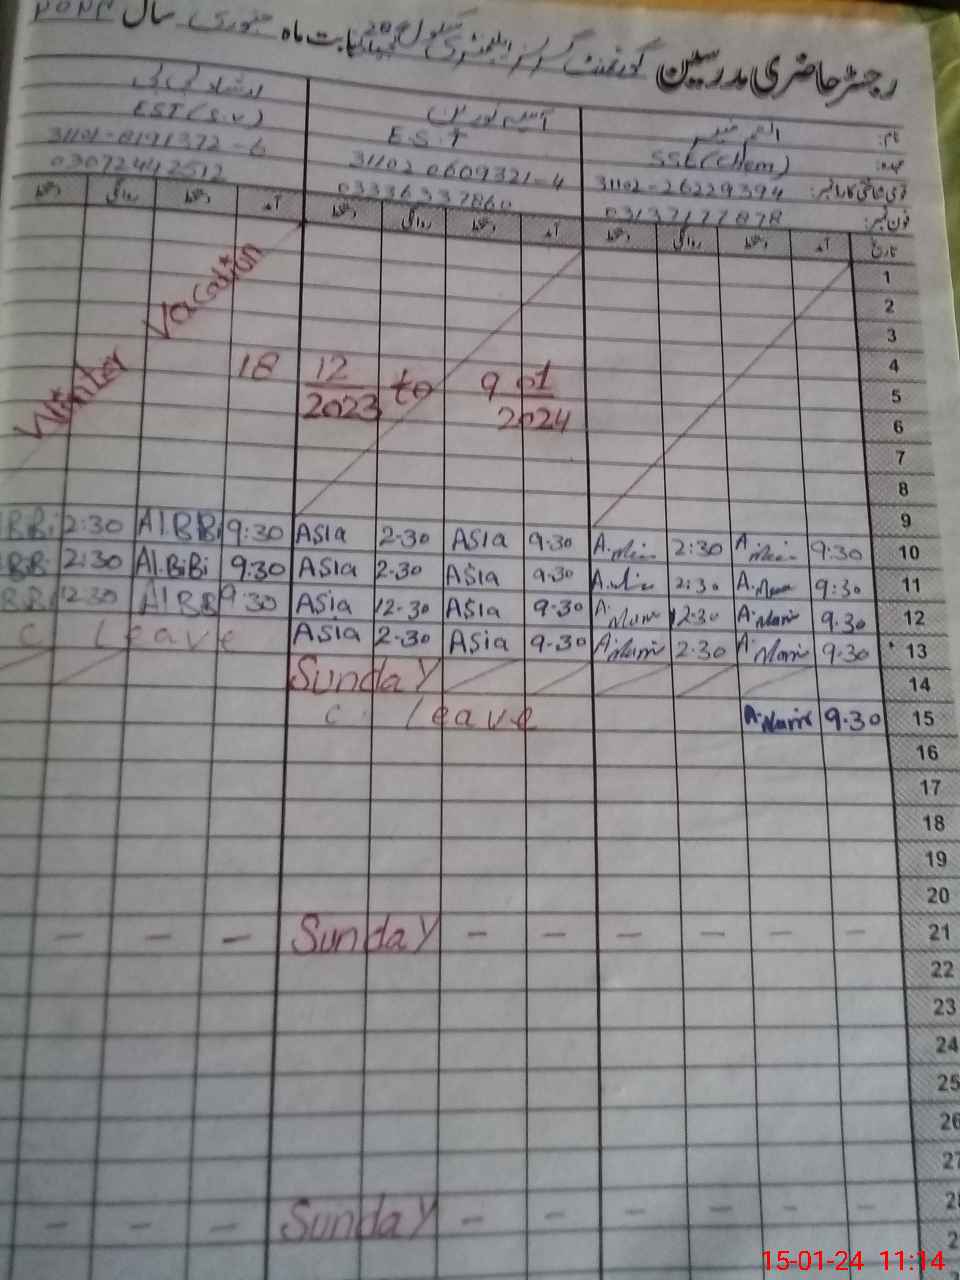 رجسٹر حاضری مدرسین گورنمنٹ گرلز ایلیمنٹری سکول بابت ماہ جنوری سال ۲۰۲۴
نام:
عہدہ: SSE(Chem) E.S.T EST(S.V)
31102-26229394 31102 0609321-4 31101-8191372-6
فون نمبر: 03137177878 03336337860 03072442512
تاریخ آمد دستخط روانگی دستخط آمد دستخط روانگی دستخط آمد دستخط روانگی دستخط
1
2
Winter Vacation
3
4
18 12 / 2023 to 9 01 / 2024
5
6
7
8
9
BiBi 2:30 Al.BiBi 9:30 ASIA 2-30 ASIA 9-30 2:30 9:30 10
BiBi 2:30 Al.BiBi 9:30 ASIA 2-30 ASIA 9-30 2:30 9:30 11
12:30 9:30 ASIA 12-30 ASIA 9-30 12:30 9.30 12
C leave ASIA 2-30 ASIA 9-30 2:30 9:30 13
Sunday 14
C. leave 9.30 15
16
17
18
19
20
- - - Sunday - - - - - - 21
22
23
24
25
26
27
- - - Sunday - - - - - - 28
15-01-24 11:14